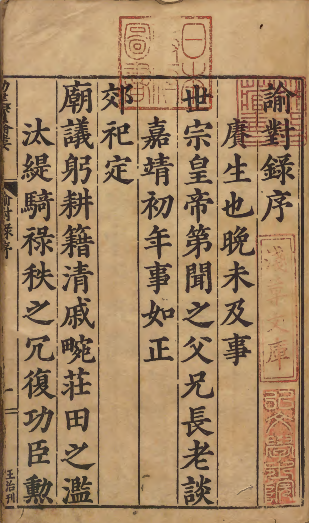 諭對錄序
賡生也晚未及事
世宗皇帝第聞之父兄長老談
嘉靖初年事如正
郊祀定
廟議躬耕籍清戚畹莊田之濫
汰緹騎祿秩之冗復功臣勳
諭對錄序
一
王治刊
日本政府圖書
淺草文庫